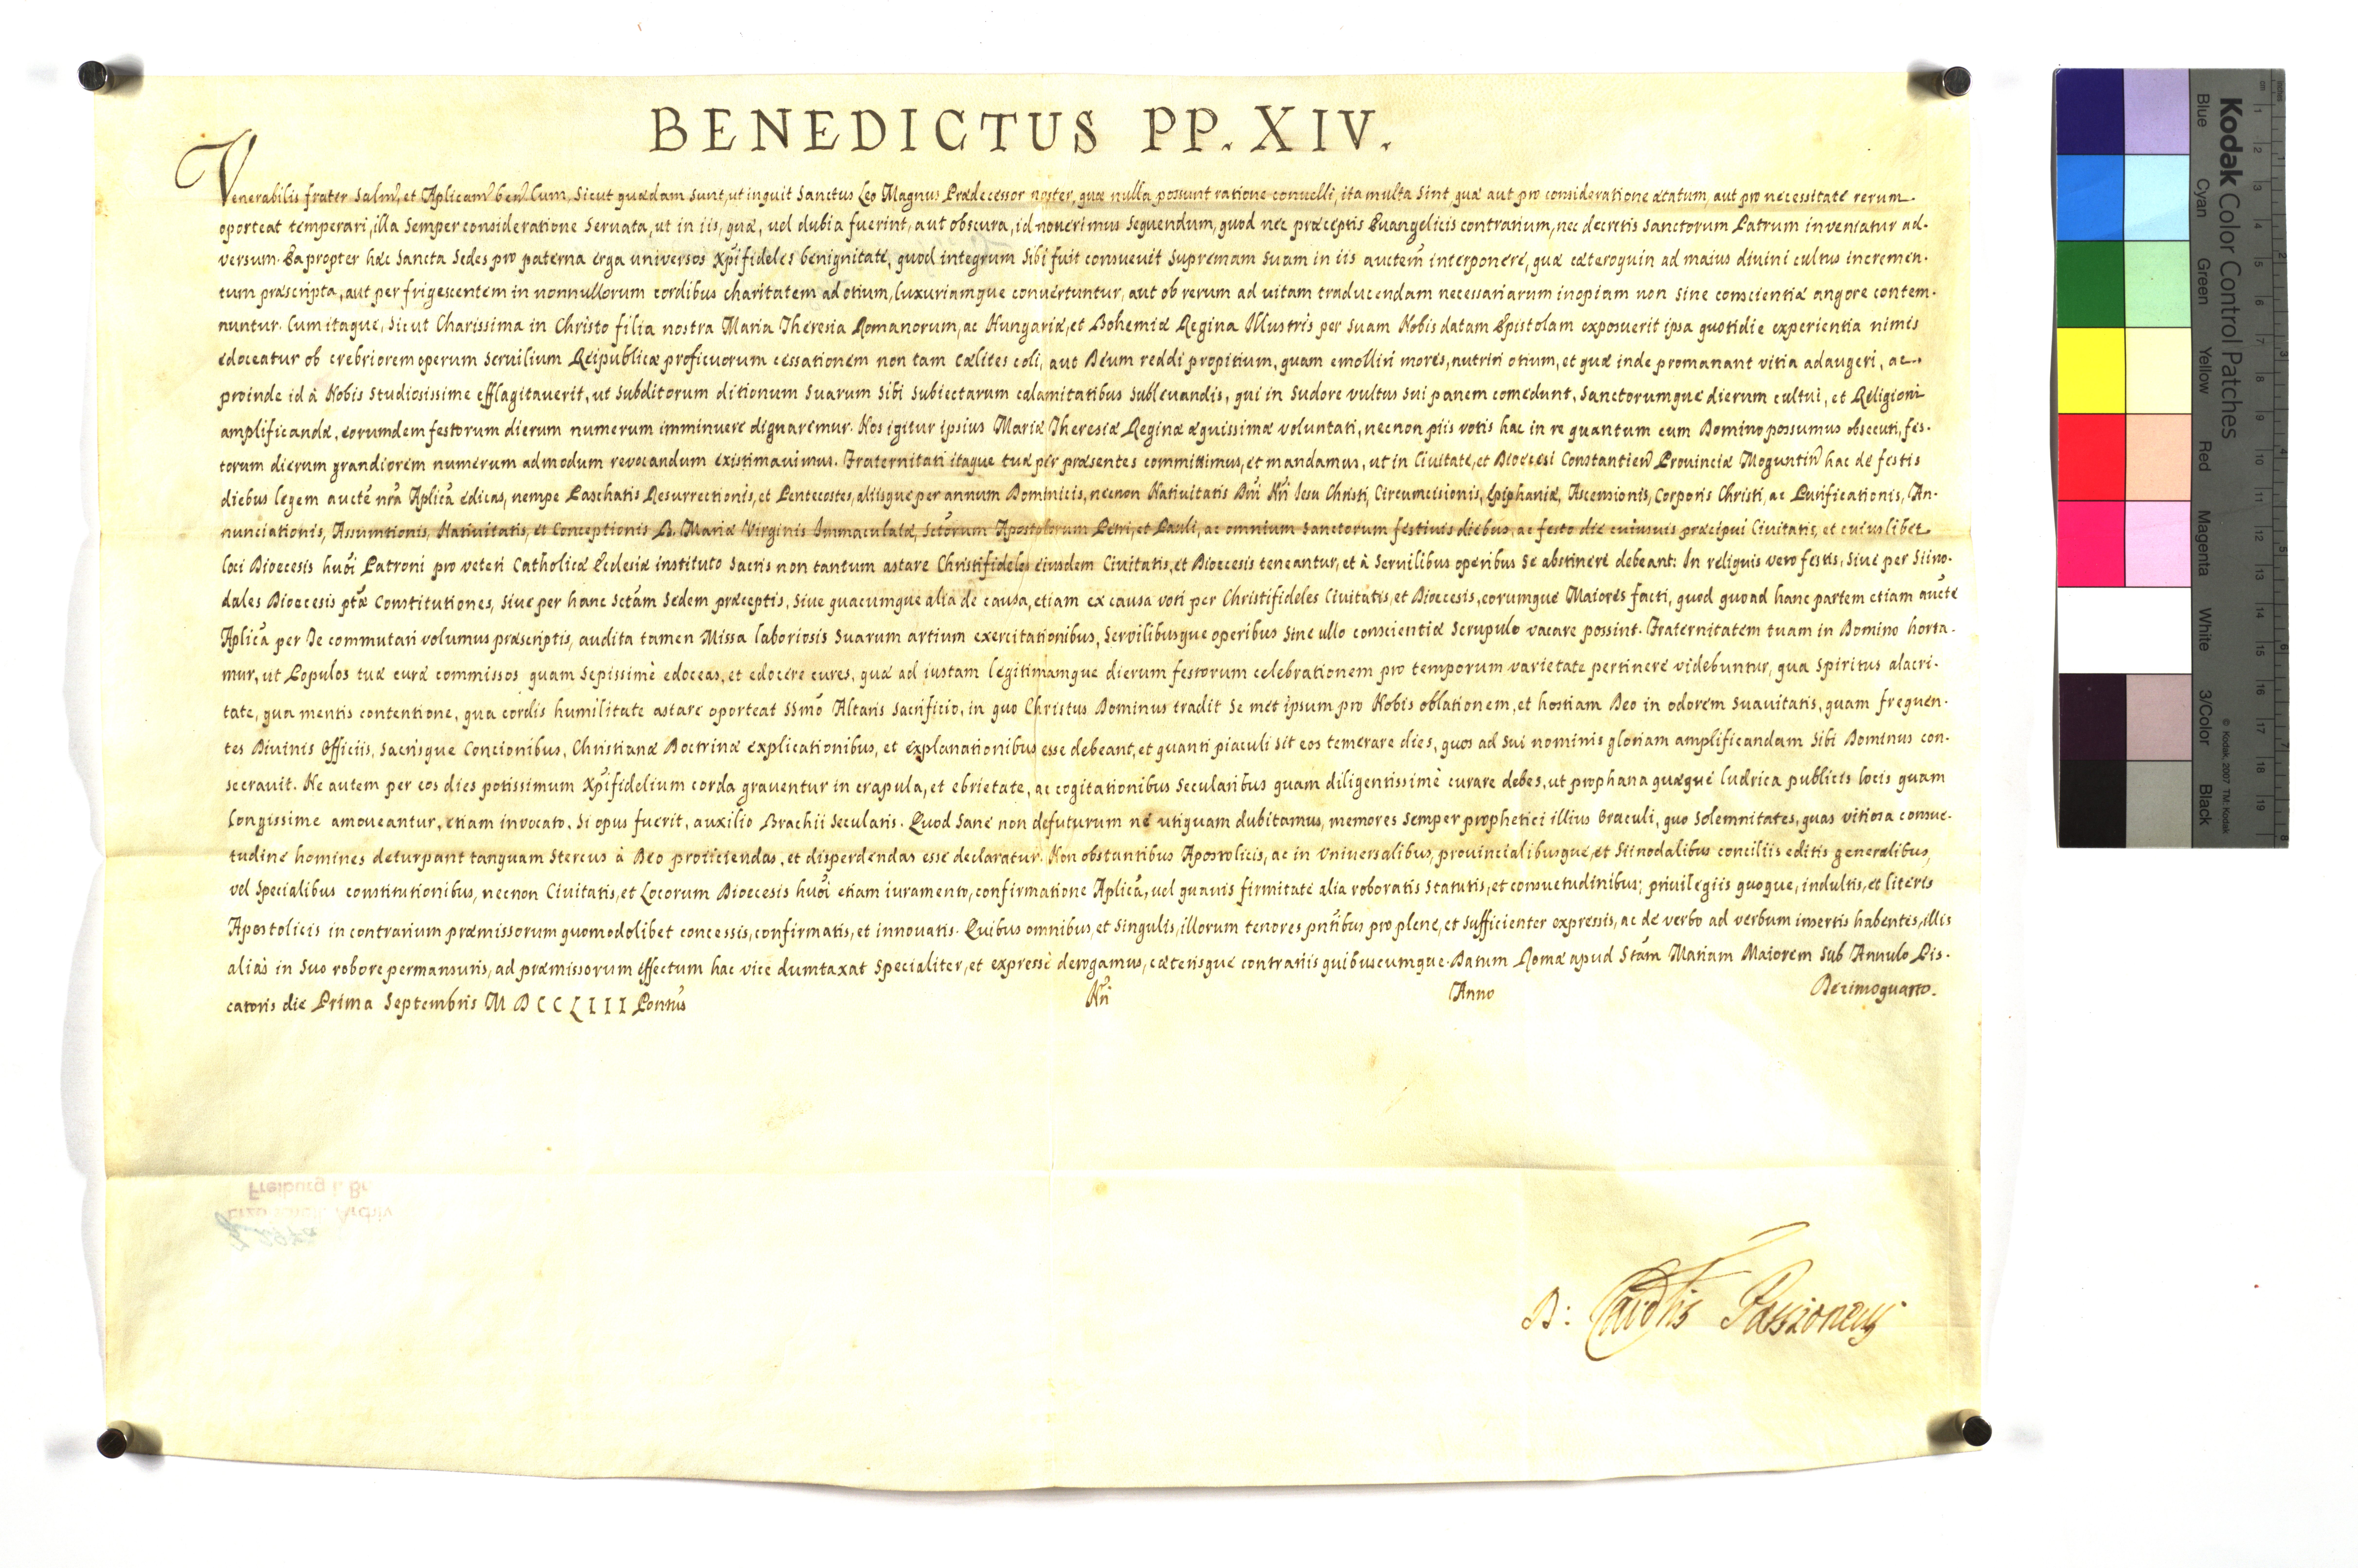 BENEDICTUS PP. XIV.
Venerabilis frater Salm̃, et Aplicam̃ ben̄. Cum, Sicut quædam sunt, ut inquit Sanctus Leo Magnus Prædecessor noster, quæ nulla possunt ratione convelli, ita multa sint, quæ aut pro consideratione ætatum, aut pro necessitate rerum
oporteat temperari, illa Semper consideratione Servata, ut in iis, quæ, vel dubia fuerint, aut obscura, id noverimus Sequendum, quod nec præceptis Evangelicis contrarium, nec decretis Sanctorum Patrum inveniatur ad-
versum. Eapropter hæc Sancta Sedes pro paterna erga universos Xp̃ifideles benignitate, quod integrum Sibi fuit consuevit Supremam Suam in iis auctem̃ interponere, quæ cæteroquin ad maius divini cultus incremen-
tum præscripta, aut per frigescentem in nonnullorum cordibus charitatem ad otium, luxuriamque convertuntur, aut ob rerum ad vitam traducendam necessariarum inopiam non Sine conscientiæ angore contem-
nuntur. Cum itaque, Sicut Charissima in Christo filia nostra Maria Theresia Romanorum, ac Hungariæ, et Bohemiæ Regina Illustris per Suam Nobis datam Epistolam exposuerit ipsa quotidie experientia nimis
edoceatur ob crebriorem operum Servilium Reipublicæ proficuorum cessationem non tam Cælites coli, aut Deum reddi propitium, quam emolliri mores, nutriri otium, et quæ inde promanant vitia adaugeri, ac
proinde id à Nobis Studiosissime efflagitaverit, ut Subditorum ditionum Suarum Sibi Subiectarum calamitatibus Sublevandis, qui in Sudore vultus Sui panem comedunt, Sanctorumque dierum cultui, et Religioni
amplificandæ, eorumdem festorum dierum numerum imminuere dignaremur. Nos igitur ipsius Mariæ Theresiæ Reginæ æquissimæ voluntati, necnon piis votis hac in re quantum cum Domino possumus obsecuti, fes-
torum dierum grandiorem numerum admodum revocandum existimavimus. Fraternitati itaque tuæ per præsentes committimus, et mandamus, ut in Civitate, et Diœcesi Constantien̄ Provinciæ Moguntin̄ hac de festis
diebus legem aucte nrã Aplicã edicas, nempe Paschatis Resurrectionis, et Pentecostes, aliisque per annum Dominicis, necnon Nativitatis Dñi Nr̃i Iesu Christi, Circumcisionis, Epiphaniæ, Ascensionis, Corporis Christi, ac Purificationis, An-
nunciationis, Assumtionis, Nativitatis, et Conceptionis B. Mariæ Virginis Immaculatæ, Sctõrum Apostolorum Petri, et Pauli, ac omnium Sanctorum festivis diebus, ac festo die cuiusvis præcipui Civitatis, et cuiuslibet
loci Diœcesis huõi Patroni pro veteri Catholicæ Ecclesiæ instituto Sacris non tantum astare Christifideles eiusdem Civitatis, et Diœcesis teneantur, et à Servilibus operibus Se abstinere debeant: In reliquis vero festis, Sive per Siino-
dales Diœcesis ptæ̃ Constitutiones, Sive per hanc Sctãm Sedem præceptis, Sive quacumque alia de causa, etiam ex causa voti per Christifideles Civitatis, et Diœcesis, eorumque Maiores facti, quod quoad hanc partem etiam auctẽ
Aplicã per Te commutari volumus præscriptis, audita tamen Missa laboriosis Suarum artium exercitationibus, Servilibusque operibus Sine ullo conscientiæ Scrupulo vacare possint. Fraternitatem tuam in Domino horta-
mur, ut Populos tuæ curæ commissos quam Sepissimè edoceas, et edocere cures, quæ ad iustam legitimamque dierum festorum celebrationem pro temporum varietate pertinere videbuntur, qua Spiritus alacri-
tate, qua mentis contentione, qua cordis humilitate astare oporteat SSmõ Altaris Sacrificio, in quo Christus Dominus tradit Se met ipsum pro Nobis oblationem, et hostiam Deo in odorem Suavitatis, quam frequen-
tes Divinis Officiis, Sacrisque Concionibus, Christianæ Doctrinæ explicationibus, et explanationibus esse debeant, et quanti piaculi Sit eos temerare dies, quos ad Sui nominis gloriam amplificandam Sibi Dominus con-
secravit. Ne autem per eos dies potissimum Xp̃ifidelium corda graventur in crapula, et ebrietate, ac cogitationibus Secularibus quam diligentissimè curare debes, ut prophana quæque ludrica publicis locis quam
longissime amoveantur, etiam invocato, Si opus fuerit, auxilio Brachii Secularis. Quod Sane non defuturum ne utiquam dubitamus, memores Semper prophetici illius Oraculi, quo Solemnitates, quas vitiosa consue-
tudine homines deturpant tanquam Stercus à Deo proiiciendas, et disperdendas esse declaratur. Non obstantibus Apostolicis, ac in Universalibus, provincialibusque, et Siinodalibus conciliis editis generalibus,
vel Specialibus constitutionibus, necnon Civitatis, et Locorum Diœcesis huõi etiam iuramento, confirmatione Aplicã, vel quavis firmitate alia roboratis Statutis, et consuetudinibus; privilegiis quoque, indultis, et literis
Apostolicis in contrarium præmissorum quomodolibet concessis, confirmatis, et innovatis. Quibus omnibus, et Singulis, illorum tenores pñtibus pro plene, et Sufficienter expressis, ac de verbo ad verbum insertis habentes, illis
aliàs in Suo robore permansuris, ad præmissorum effectum hac vice dumtaxat Specialiter, et expressè derogamus, cæterisque contrariis quibuscumque. Datum Romæ apud Stãm Mariam Maiorem Sub Annulo Pis-
catoris die Prima Septembris MDCCLIII Pontũs Nr̃i Anno Decimoquarto.
D: Card̃lis Passioneus
Freiburg i. Br.
Archiv
Kodak Color Control Patches
Blue Cyan Green Yellow Red Magenta White 3/Color Black
© Kodak, 2007 TM: Kodak
cm 1 2 3 4 5 6 7 8 9 10 11 12 13 14 15 16 17 18 19
inches 1 2 3 4 5 6 7 8